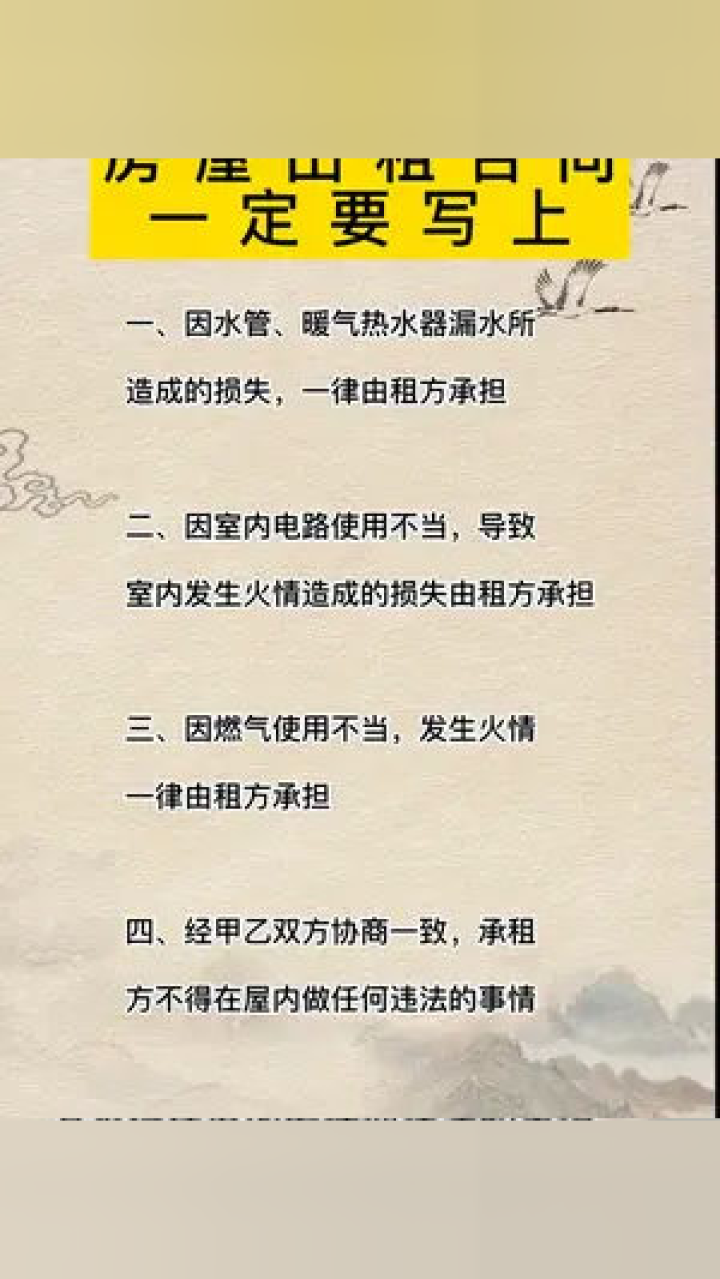 房屋出租合同
一定要写上
一、因水管、暖气热水器漏水所
造成的损失，一律由租方承担
二、因室内电路使用不当，导致
室内发生火情造成的损失由租方承担
三、因燃气使用不当，发生火情
一律由租方承担
四、经甲乙双方协商一致，承租
方不得在屋内做任何违法的事情